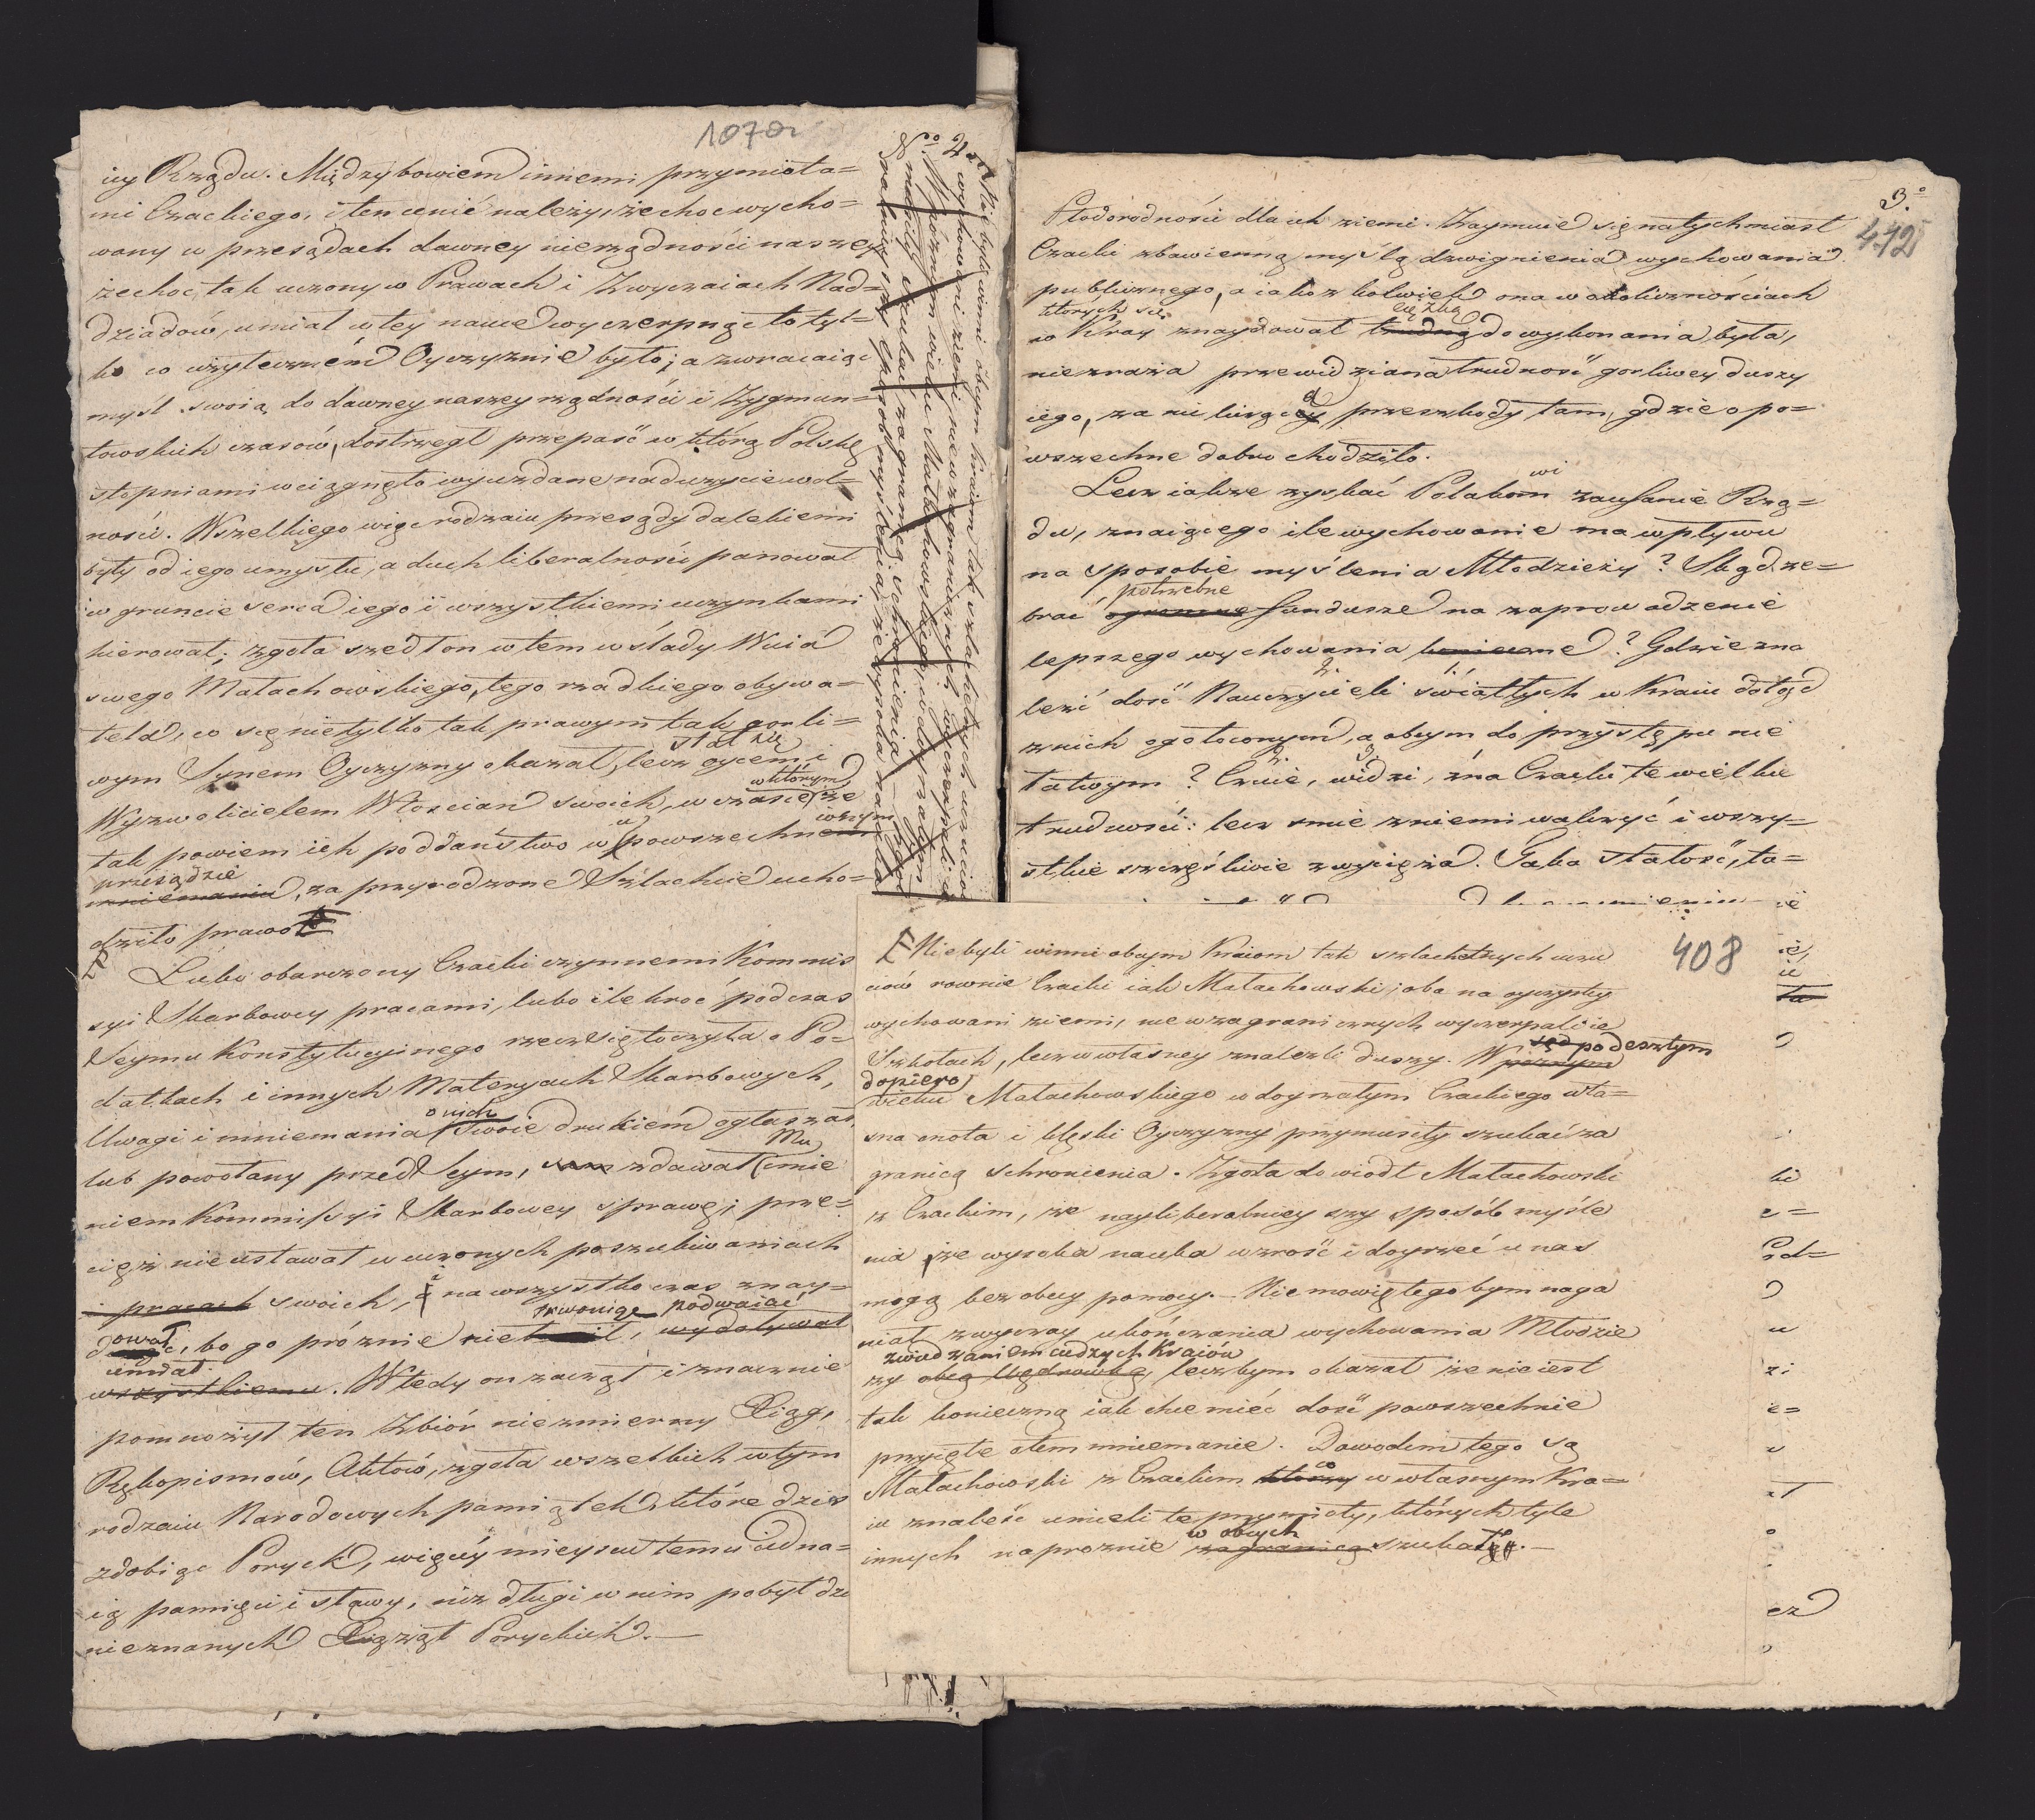 1070
iey Rządu. Międzybowiem innemi przymiota=
mi Czackiego, i ten cenić należy, że choc wycho=
wany w przesądach dawney nierządności naszey,
że choc tak uczony w Prawach i Zwyczaiach Nad=
dziadów, umiał w tey nauce wyczerpnąc to tyl=
ko co użyteczném Oyczyznie było; a zwracaiąc
myśl swoią do dawney naszey rządności i Zygmun=
towskich czasów, dostrzegł przepaść w którą Polskę
stopniami wciągnęło wyuzdane nadużycie wol=
ności. Wszelkiego więc rodzaiu przesądy dalekiemi
były od iego umysłu, a duch liberalności panował
w gruncie serca iego i wszystkiemi uczynkami
kierował; zgoła szedł on w tem w ślady Wuia
swego Małachowskiego, tego rzadkiego obywa=
tela, co się nietylko tak prawym tak gorli=
wym Synem Oyczyzny okazał, lecz oycem i
stał się
Wyzwolicielem Włoscian swoich, w czasie że
w którym
tak powiem ich poddaństwo w powszechnem
przesądzie
mniemaniu, za przyrodzone Szlachcie ucho=
dziło prawo
Lubo obarczony Czacki czynnemi Kommis
syi Skarbowey pracami, lubo ilekroć podczas
Seymu Konstytucyinego rzecz się toczyła o Po=
datkach i innych Materyach Skarbowych,
o nich
Uwagi i mniemania swoie drukiem ogłaszał
Mu
lub powołany przed Seym, sam zdawał imie
niem Kommissyi Skarbowey sprawę; prze=
cięż nie ustawał w uczonych poszukiwaniach
i pracach swoich, i na wszystko czas znay=
trwoniąc podwaiać
dował, bo go próznie nie, wydoływał
umiał
wszystkiemu. Wtedy on zaczął i znacznie
pomnożył ten Zbiór niezmierny Xiąg,
Rękopismów, Aktów, zgoła wszelkich w tym
rodzaiu Narodowych pamiątek, które dziś
zdobiąc Poryck, więcéy mieyscu temu iedna=
ią pamięci i sławy, niż długi w nim pobyt dzi
nieznanych Xiążąt Poryckich.—
Nie byli winni obcym kraiom tak szlachetnych uczuciow
wychowani ziemi, nie w zagranicznych wyczerpali
W póżnym wieku Małachowskiego, w doyrzałym
szukać za granicą schronienia
3.°
442
Płodorodności dla ich ziemi. Zaymuie się natychmiast
Czacki zbawienną myślą dzwignienia wychowania
publicznego, a iakozkolwiek ona w okolicznościach
których się ciężką
w Kray znaydował trudną do wykonania była,
niezraża przewidziana trudność gorliwey duszy
iego, za nic liczącey przeszkody tam, gdzie o po=
wszechne dobro chodziło.
Lecz iakże zyskać Polakowi zaufanie Rzą=
du, znaiącego ile wychowanie ma wpływu
na sposobie myślenia Młodzieży? Skąd ze=
potrzebne
brać ogromne fundusze na zaprowadzenie
lepszego wychowania konieczne? Gdzie zna
leźć dość Nauczycieli światłych w Kraiu dotąd
z nich ogołoconym, a obcym do przystępu nie
łatwym? Czuie, widzi, zna Czacki te wielkie
trudności: lecz smie z niemi walczyć i wszy=
stkie szczęśliwie zwycięża. Taka stałość, ta=
408
Nie byli winni obcym Kraiom tak szlachetnych uczu
ciów rownie Czacki iak Małachowski; oba na oyczystey
wychowani ziemi, nie w zagranicznych wyczerpali ie
Szkołach, lecz w własney znalezli duszy. W poznym
podeszłym
dopiero
wieku Małachowskiego w doyrzałym Czackiego wła=
sna cnota i klęski Oyczyzny przymusiły szukać za
granicą schronienia. Zgoła dowiodł Małachowski
z Czackim, że nayliberalnieyszy sposób myśle
nia, że wysoka nauka wzrość i doyrzeć u nas
mogą bez obcey pomocy.— Nie mowię tego bym naga
niał zwyczay ukończania wychowania Młodzie
zwiedzaniem cudzych Kraiów
ży obcą wędrowką, lecz bym okazał że nie iest
tak konieczną iak chce mieć dość powszechnie
przyięte o tem mniemanie. Dowodem tego są
co
Małachowski z Czackim którzy w własnym Kra=
iu znaleść umieli te przymioty, których tyle
w obcych
innych naprożnie zagranicą szukało.—